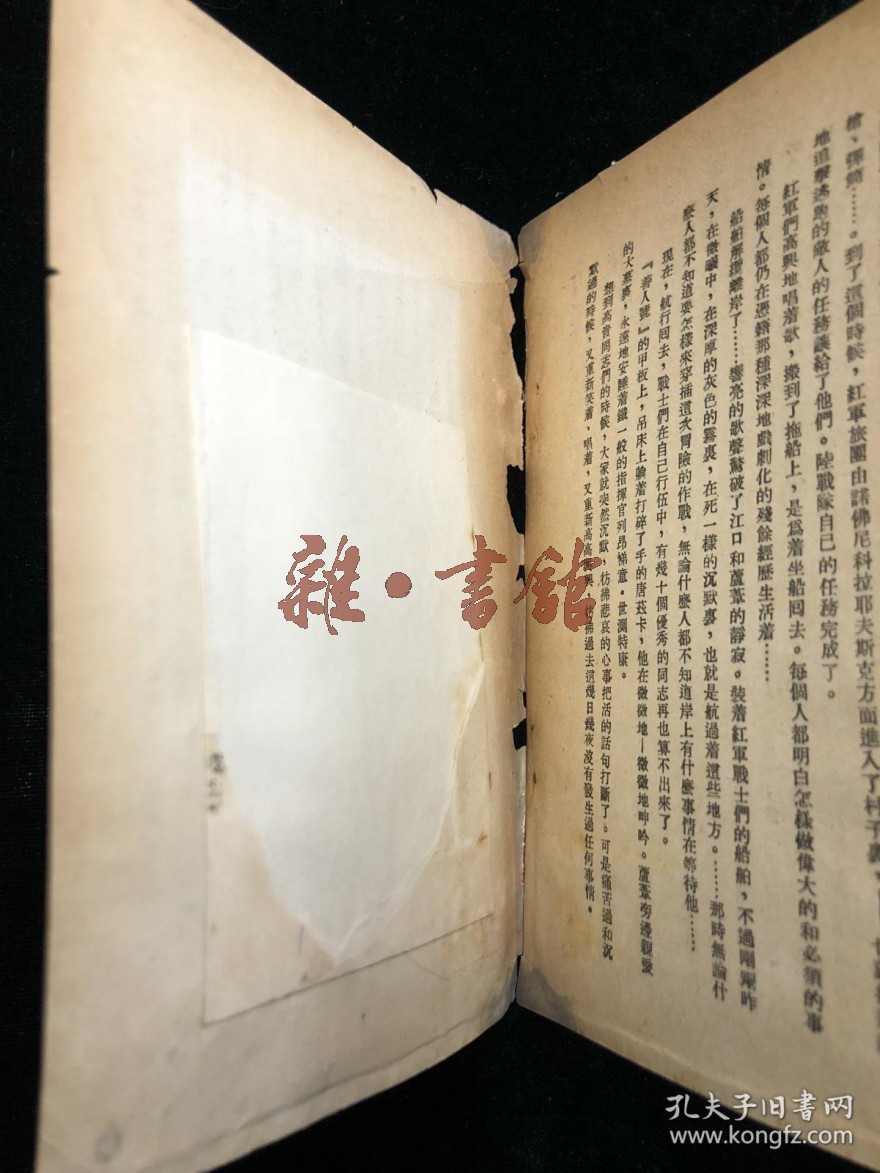 槍、彈筒……。到了這個時候，紅軍旅團由諾佛尼科拉耶夫斯克方面進入了村子裏，
地追擊逃跑的敵人的任務議給了他們。陸戰隊自己的任務完成了。
紅軍們高興地唱着歌，搬到了拖船上，是爲着坐船回去。每個人都明白怎樣做偉大的和必須的事
情。每個人都仍在憑藉那種深深地戲劇化的殘餘經歷生活着……
船舶解纜離岸了……響亮的歌聲驚破了江口和蘆葦的靜寂。裝着紅軍戰士們的船舶，不過剛剛昨
天，在微曦中，在深厚的灰色的霧裏，在死一樣的沉默裏，也就是航過着這些地方。……那時無論什
麼人都不知道要怎樣來穿插這次冒險的作戰，無論什麼人都不知道岸上有什麼事情在等待他……
現在，航行回去，戰士們在自己行伍中，有幾十個優秀的同志再也算不出來了。
『善人號』的甲板上，吊床上躺着打碎了手的唐茲卡，他在微微地—微微地呻吟。蘆葦旁邊親愛
的大墓裏，永遠地安睡着鐵一般的指揮官列昂悌意·世測特康。
想到高貴同志們的時候，大家就突然沉默，彷彿悲哀的心事把活的話句打斷了。可是痛苦過和沉
默過的時候，又重新笑着，唱着，又重新高高興興，彷彿過去這幾日幾夜沒有發生過任何事情。
雜·書館
孔夫子旧书网
www.kongfz.com